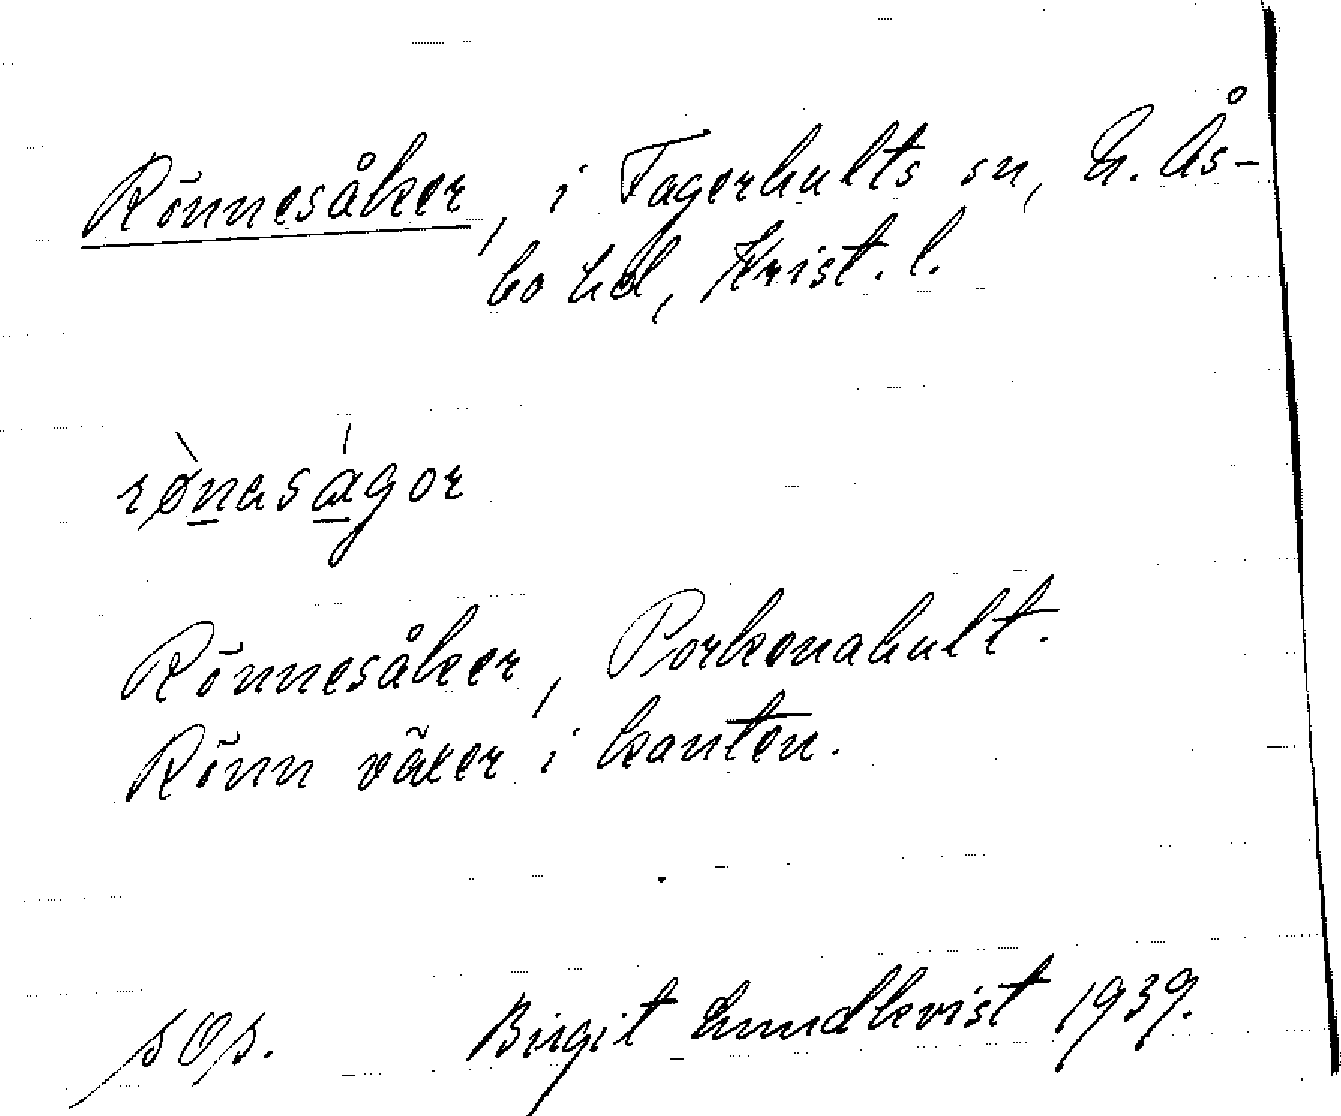 Rönnesåker, i Fagerhults sn, N. Ås-
bo hd, Krist. l.
rø̀naságor
Rönnesåker, Porkenahult.
Rönn växer i kanten.
sOs. Birgit Lundkvist 1939.